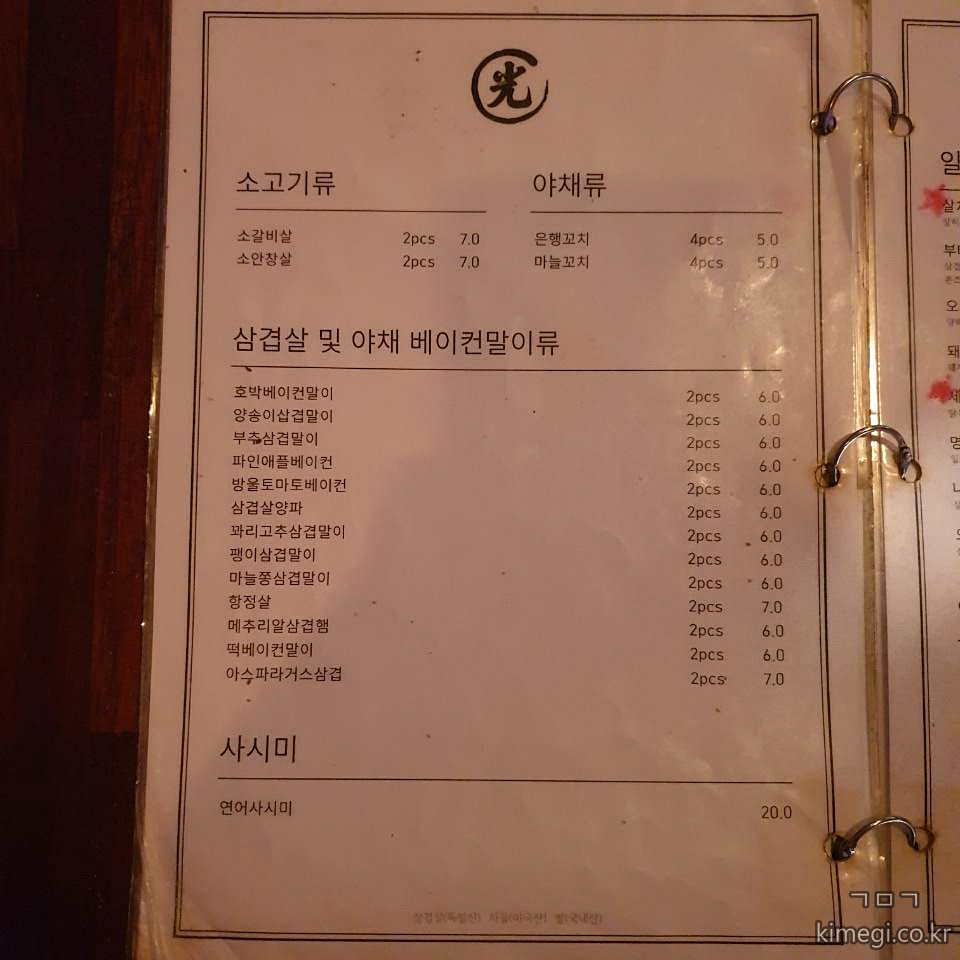 光
소고기류
소갈비살 2pcs 7.0
소안창살 2pcs 7.0
야채류
은행꼬치 4pcs 5.0
마늘꼬치 4pcs 5.0
삼겹살 및 야채 베이컨말이류
호박베이컨말이 2pcs 6.0
양송이삼겹말이 2pcs 6.0
부추삼겹말이 2pcs 6.0
파인애플베이컨 2pcs 6.0
방울토마토베이컨 2pcs 6.0
삼겹살양파 2pcs 6.0
꽈리고추삼겹말이 2pcs 6.0
팽이삼겹말이 2pcs 6.0
마늘쫑삼겹말이 2pcs 6.0
항정살 2pcs 7.0
메추리알삼겹햄 2pcs 6.0
떡베이컨말이 2pcs 6.0
아스파라거스삼겹 2pcs 7.0
사시미
연어사시미 20.0
ㄱㅁㄱ
kimegi.co.kr